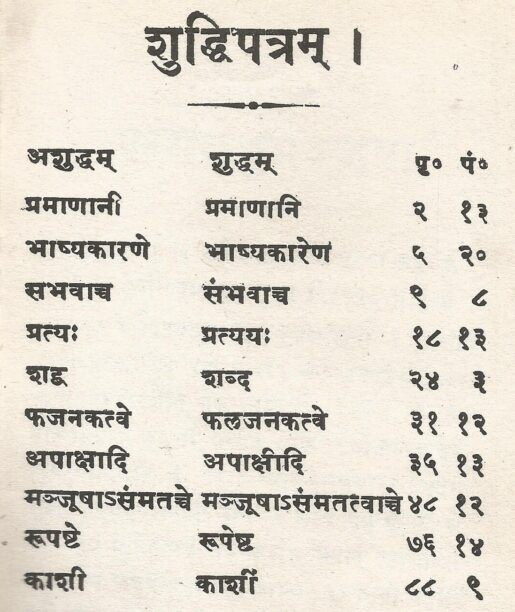 शुद्धिपत्रम् ।
अशुद्धम् शुद्धम् पृ० पं०
प्रमाणानी प्रमाणानि २ १३
भाष्यकारणे भाष्यकारेण ५ २०
सभवाच्च संभवाच्च ९ ८
प्रत्यः प्रत्ययः १८ १३
शद्ब शब्द २४ ३
फजनकत्वे फलजनकत्वे ३१ १२
अपाक्षादि अपाक्षीदि ३५ १३
मञ्जूषाऽसंमतच्चे मञ्जूषाऽसंमतत्वाच्चे ४८ १२
रूपष्टे रूपेष्ट ७६ १४
काशी काशीं ८८ ९